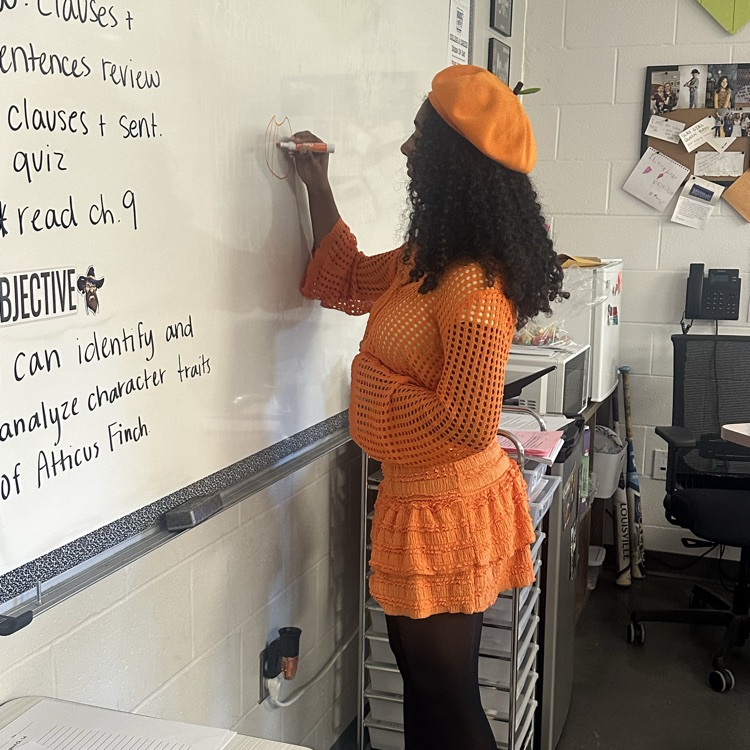 Clauses +
sentences review
clauses + sent.
quiz
* read ch. 9
OBJECTIVE
can identify and
analyze character traits
of Atticus Finch
LOUISVILLE